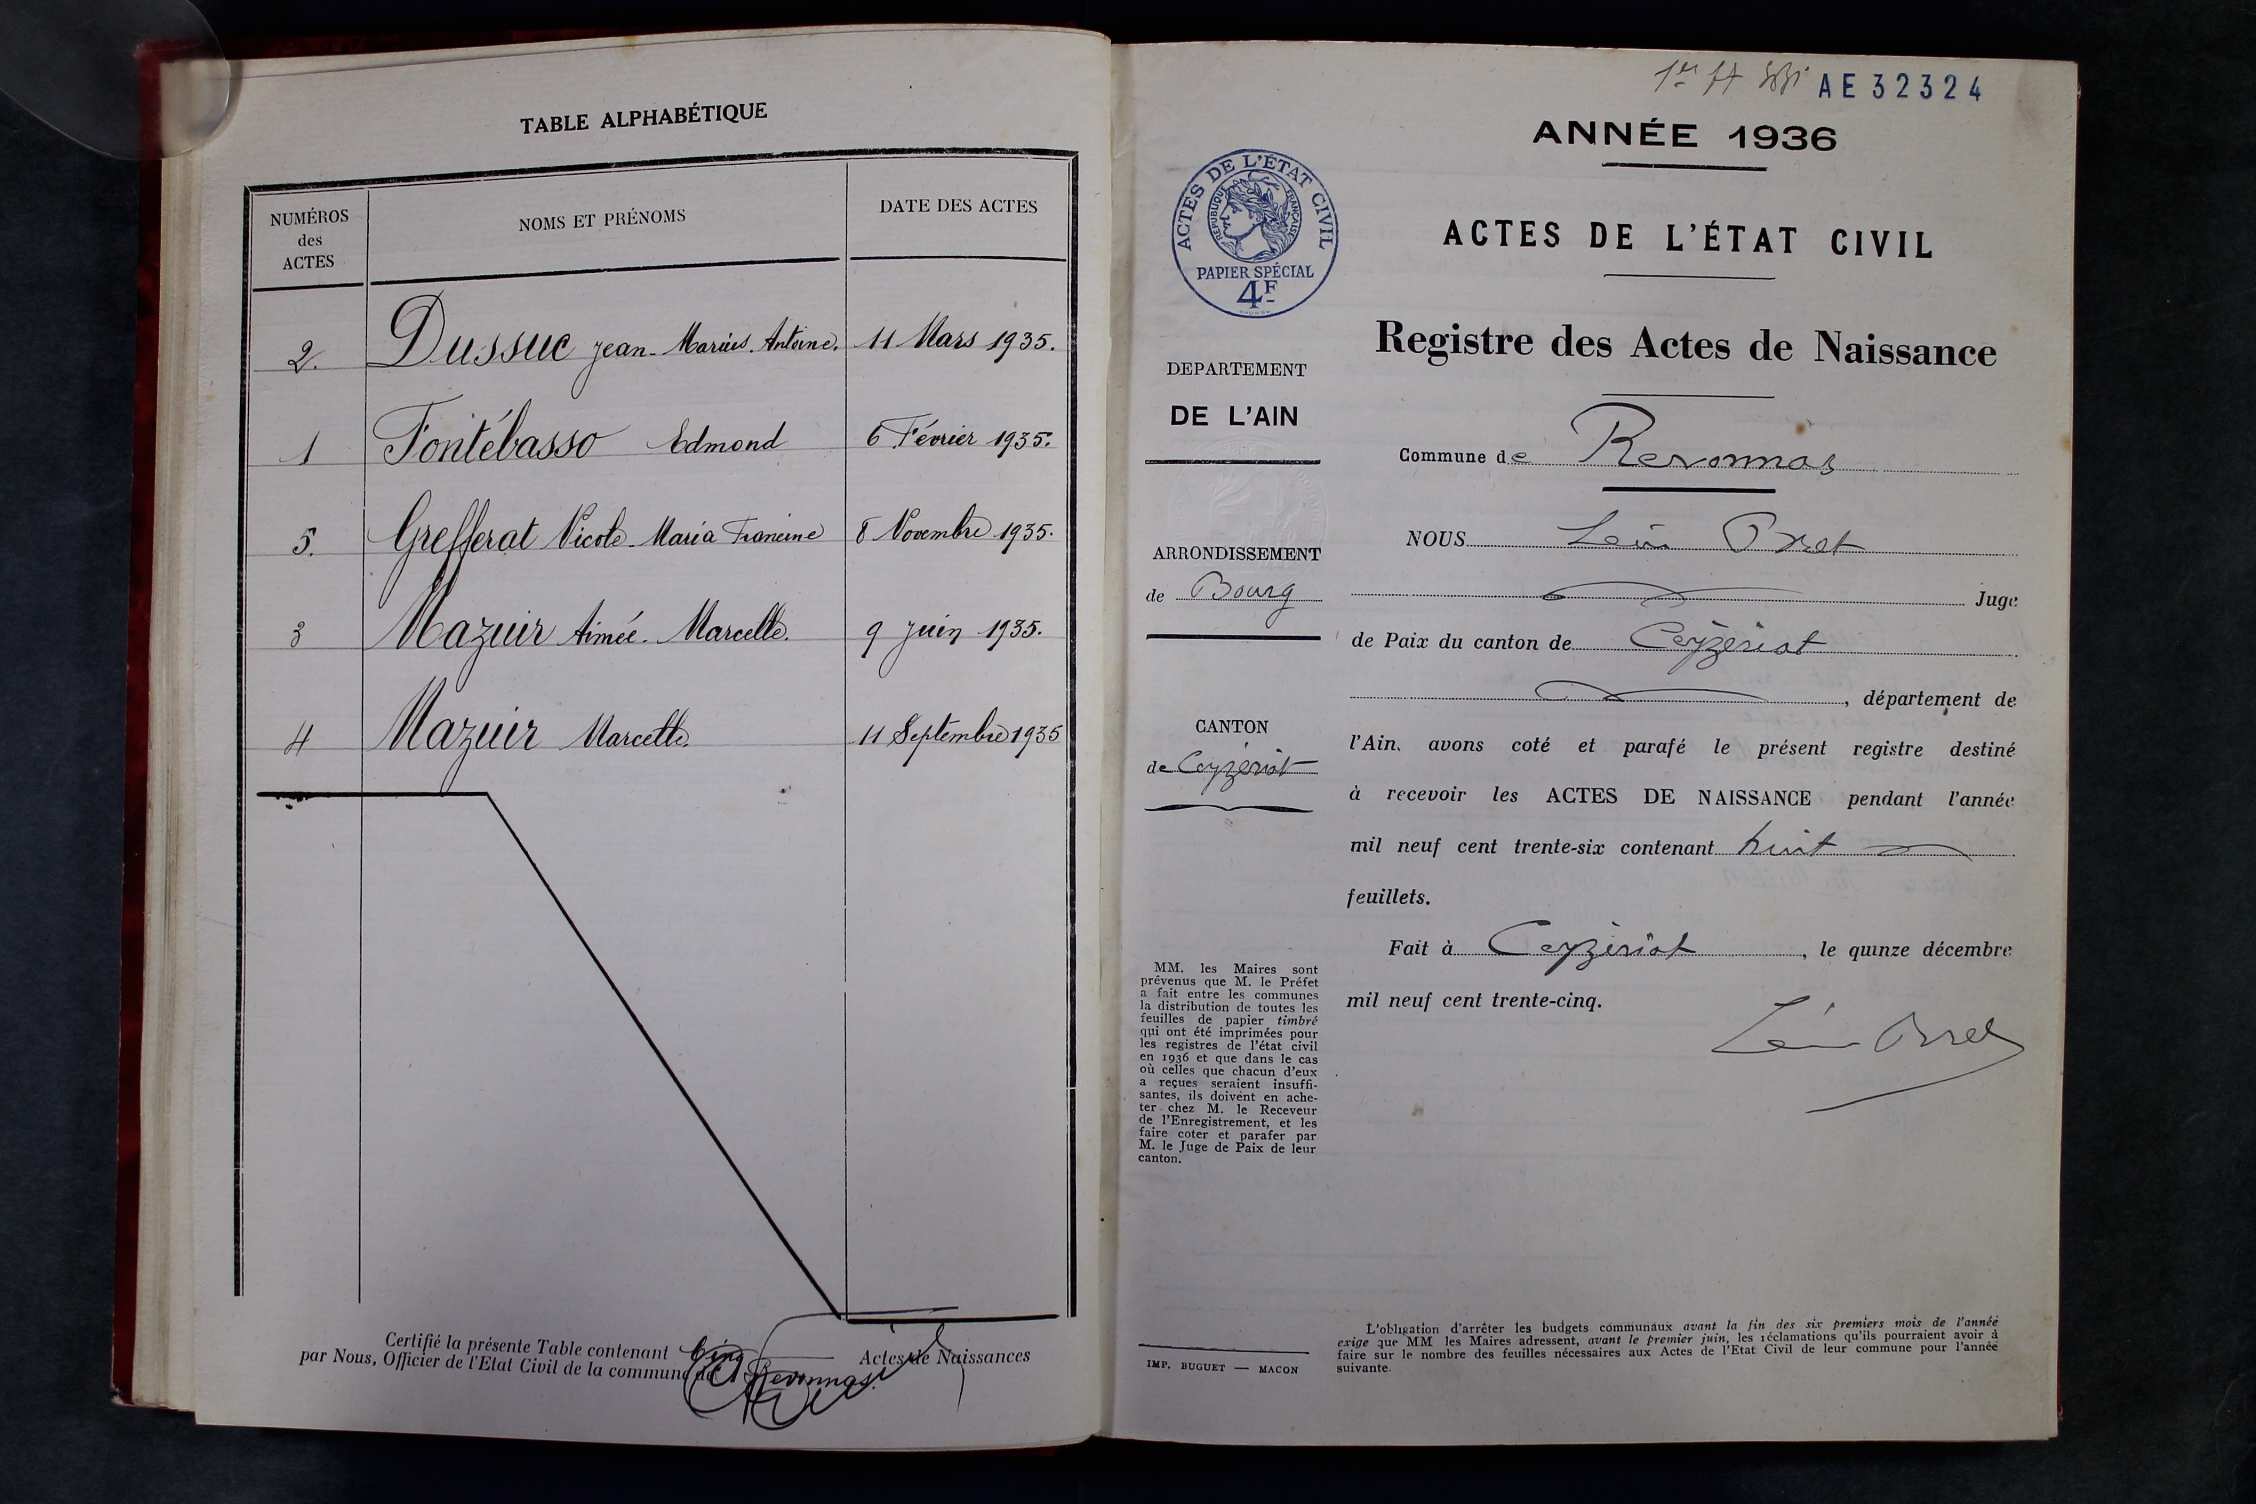 TABLE ALPHABÉTIQUE
NUMÉROS
des
ACTES
NOMS ET PRÉNOMS
DATE DES ACTES
2. Dussuc Jean-Marius-Antoine. 11 Mars 1935.
1 Fontébasso Edmond 6 Février 1935.
5. Grefferat Nicole-Maria Francine 8 Novembre 1935.
3 Mazuir Aimée-Marcelle. 9 juin 1935.
4 Mazuir Marcelle. 11 Septembre 1935
Certifié la présente Table contenant Cinq Actes de Naissances
par Nous, Officier de l'Etat Civil de la commune de Revonnas.
AE32324
ANNÉE 1936
ACTES DE L'ÉTAT CIVIL
RÉPUBLIQUE FRANÇAISE
PAPIER SPÉCIAL
4F
ACTES DE L'ÉTAT CIVIL
Registre des Actes de Naissance
DEPARTEMENT
DE L'AIN
ARRONDISSEMENT
de Bourg
CANTON
de Ceyzériat
MM. les Maires sont
prévenus que M. le Préfet
a fait entre les communes
la distribution de toutes les
feuilles de papier timbré
qui ont été imprimées pour
les registres de l'état civil
en 1936 et que dans le cas
où celles que chacun d'eux
a reçues seraient insuffi-
santes, ils doivent en ache-
ter chez M. le Receveur
de l'Enregistrement, et les
faire coter et parafer par
M. le Juge de Paix de leur
canton.
IMP. BUGUET — MACON
Commune de Revonnas
NOUS Léon
Juge
de Paix du canton de Ceyzériat
, département de
l'Ain, avons coté et parafé le présent registre destiné
à recevoir les ACTES DE NAISSANCE pendant l'année
mil neuf cent trente-six contenant huit
feuillets.
Fait à Ceyzériat, le quinze décembre
mil neuf cent trente-cinq.
Léon
L'obligation d'arrêter les budgets communaux avant la fin des six premiers mois de l'année
exige que MM les Maires adressent, avant le premier juin, les réclamations qu'ils pourraient avoir à
faire sur le nombre des feuilles nécessaires aux Actes de l'Etat Civil de leur commune pour l'année
suivante.